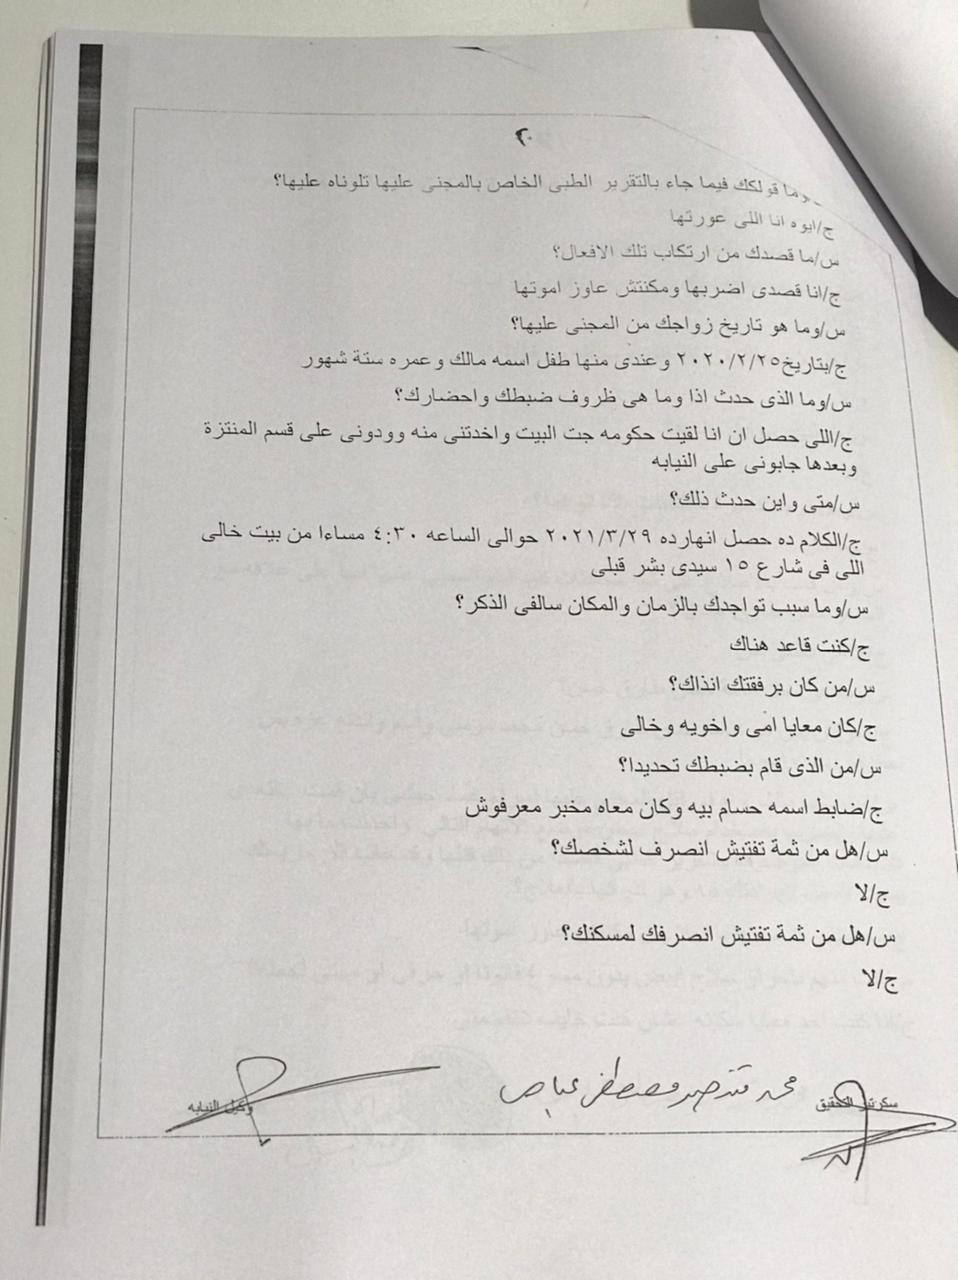 ٢٠
وما قولكك فيما جاء بالتقرير الطبى الخاص بالمجنى عليها تلوناه عليها؟
ج/ايوه انا اللى عورتها
س/ما قصدك من ارتكاب تلك الافعال؟
ج/انا قصدى اضربها ومكنتش عاوز اموتها
س/وما هو تاريخ زواجك من المجنى عليها؟
ج/بتاريخ٢٠٢٠/٢/٢٥ وعندى منها طفل اسمه مالك وعمره ستة شهور
س/وما الذى حدث اذا وما هى ظروف ضبطك واحضارك؟
ج/اللى حصل ان انا لقيت حكومه جت البيت واخدتنى منه وودونى على قسم المنتزة
وبعدها جابونى على النيابه
س/متى واين حدث ذلك؟
ج/الكلام ده حصل انهارده ٢٠٢١/٣/٢٩ حوالى الساعه ٤:٣٠ مساءا من بيت خالى
اللى فى شارع ١٥ سيدى بشر قبلى
س/وما سبب تواجدك بالزمان والمكان سالفى الذكر؟
ج/كنت قاعد هناك
س/من كان برفقتك انذاك؟
ج/كان معايا امى واخويه وخالى
س/من الذى قام بضبطك تحديدا؟
ج/ضابط اسمه حسام بيه وكان معاه مخبر معرفوش
س/هل من ثمة تفتيش انصرف لشخصك؟
ج/لا
س/هل من ثمة تفتيش انصرفك لمسكنك؟
ج/لا
سكرتير التحقيق
محمد منتصر مصطفى عباس
وكيل النيابه